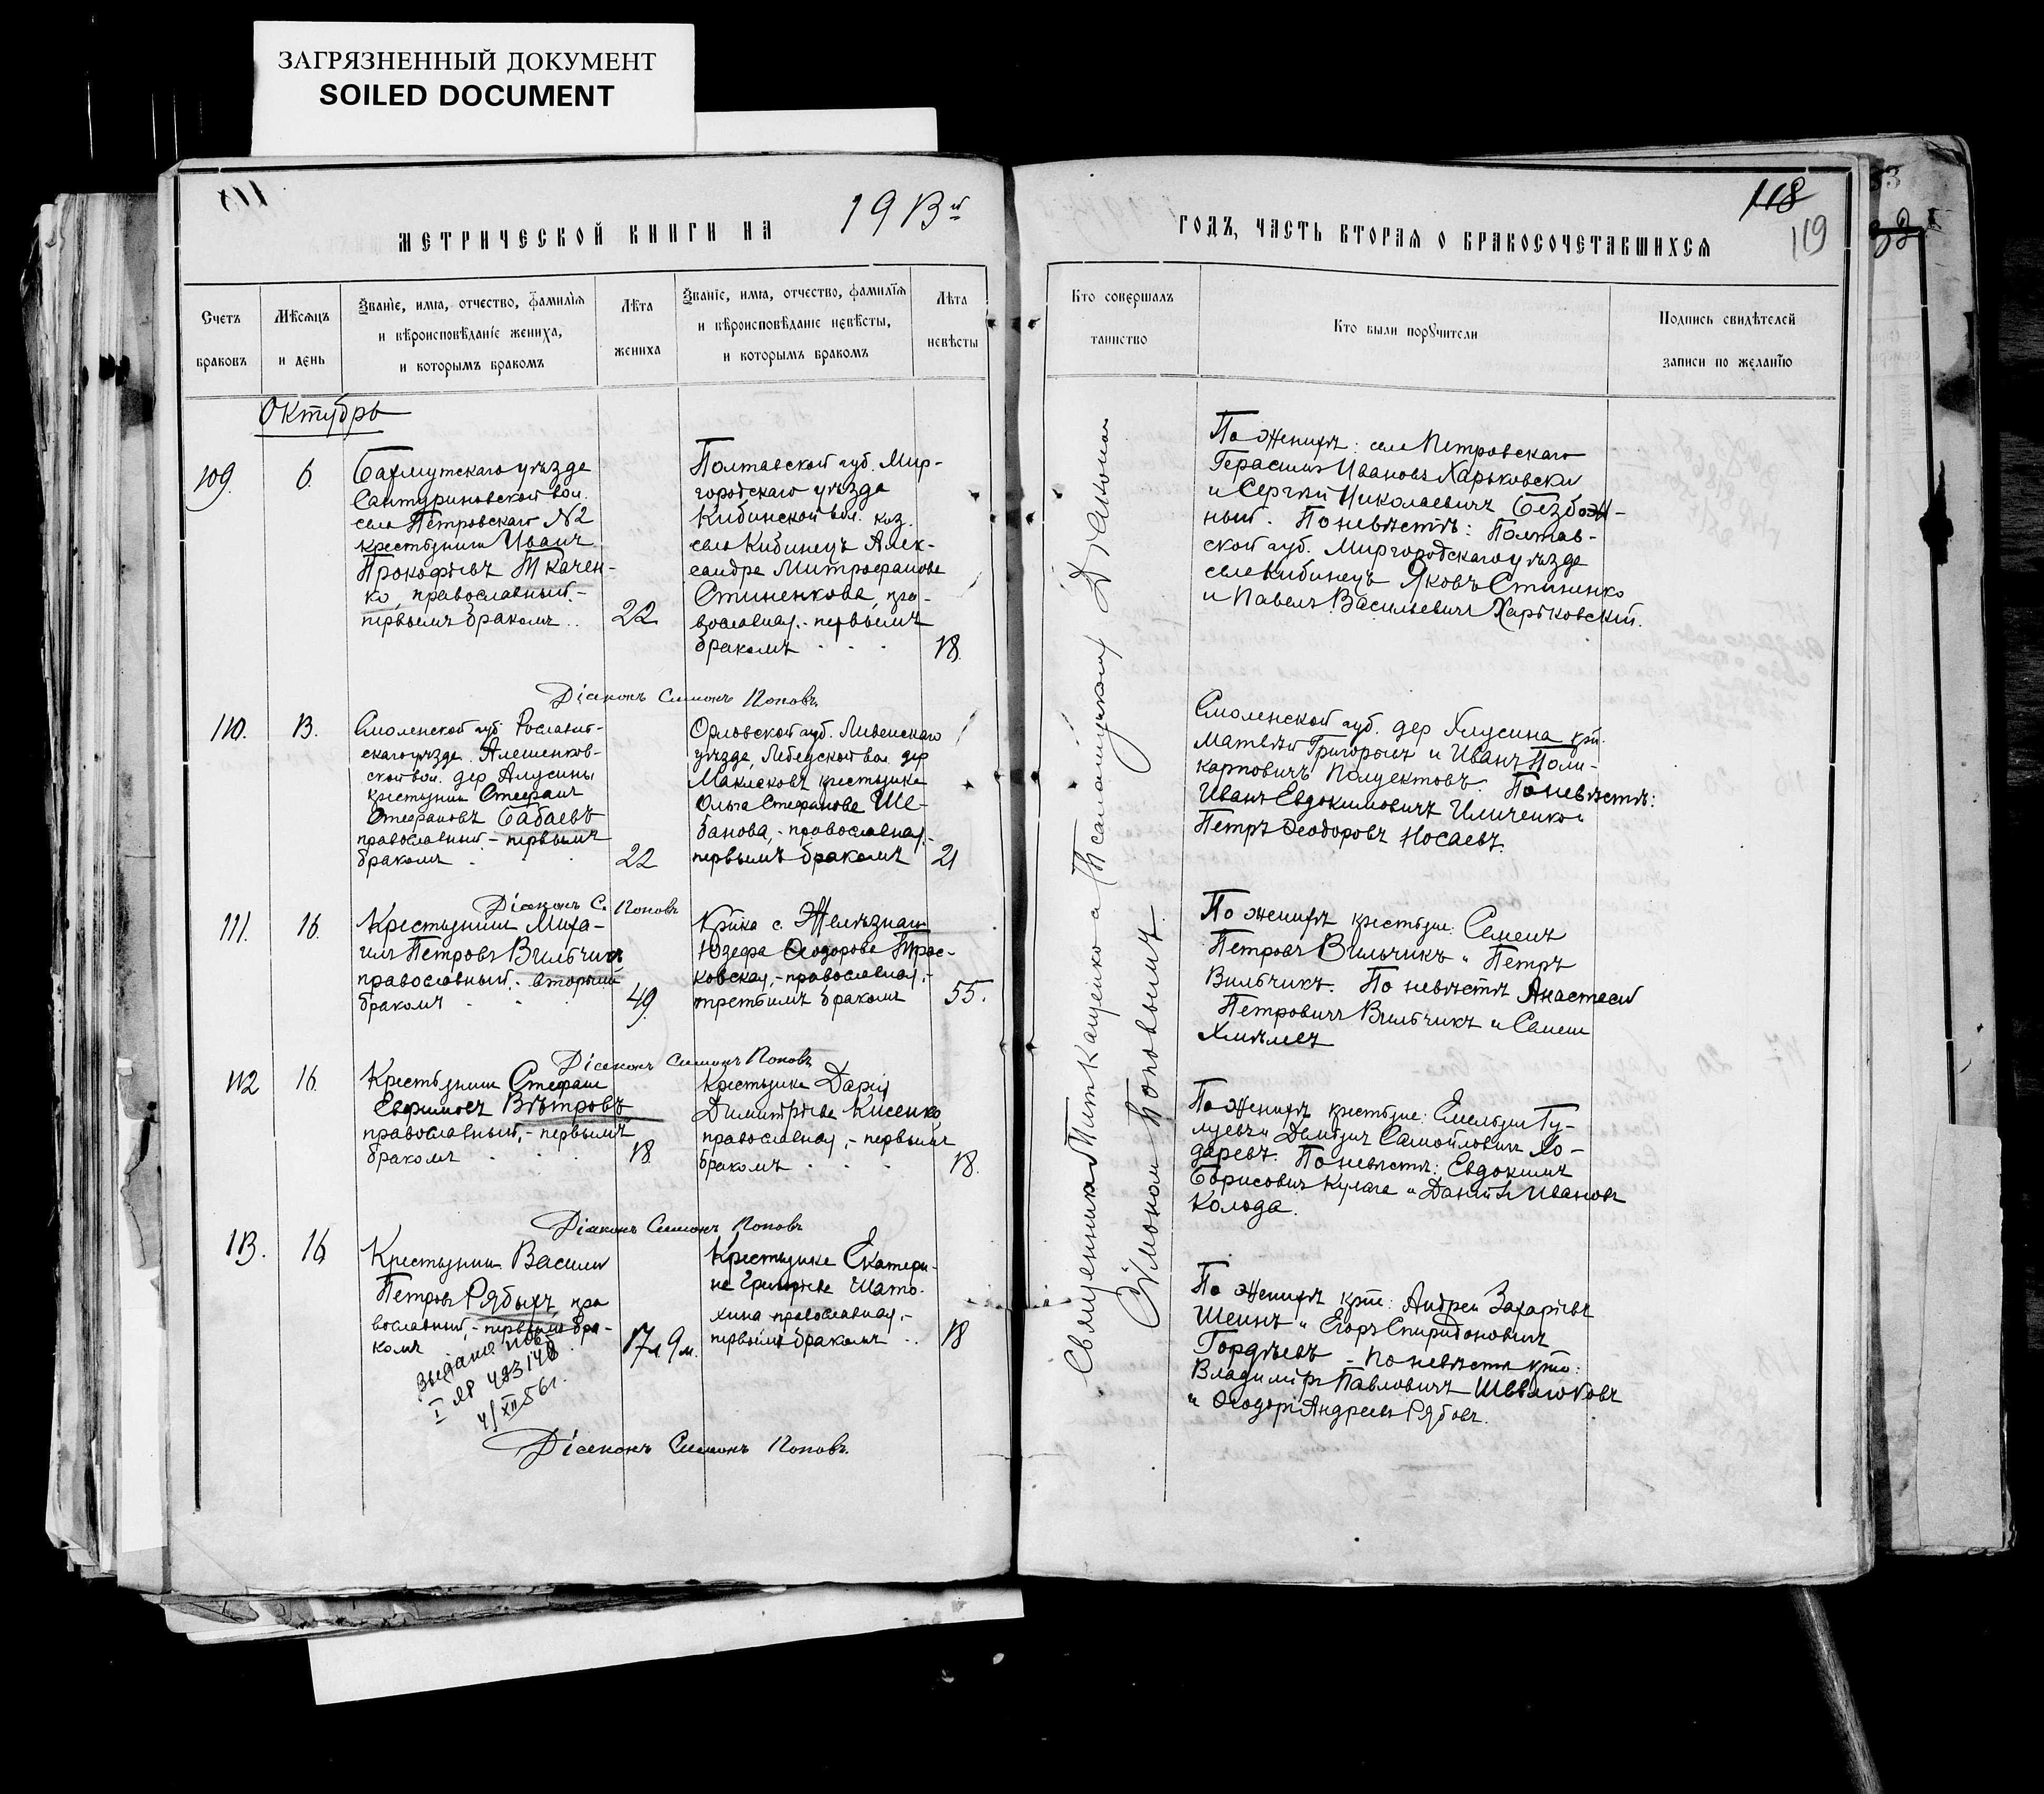 ЗАГРЯЗНЕННЫЙ ДОКУМЕНТ
SOILED DOCUMENT
МЕТРИЧЕСКОЙ КНИГИ НА 1913й
Счетъ браковъ
Мѣсяцъ и день
Званіе, имя, отчество, фамилія
и вѣроисповѣданіе жениха,
и которымъ бракомъ
Лѣта жениха
Званіе, имя, отчество, фамилія
и вѣроисповѣданіе невѣсты,
и которымъ бракомъ
Лѣта невѣсты
Октябрь
109. 6.
Бахмутскаго уѣзда
Сантуриновской вол.
села Петровскаго №2
крестьянинъ Иванъ
Прокофьевъ Ткачен-
ко, православный,-
первымъ бракомъ..
22
Полтавской губ. Мир-
городскаго уѣзда
Кибинской вол. коз.
села Кибинецъ Алек-
сандра Митрофанова
Стиненкова, пра-
вославная,- первымъ
бракомъ
18.
Діаконъ Симонъ Поповъ
110. 13.
Смоленской губ. Рославль-
скаго уѣзда. Алешенков-
ской вол. дер.
крестьянинъ Стефанъ
Стефановъ Бабаевъ
православный,- первымъ
бракомъ
22
Орловской губ. Ливенскаго
уѣзда, Лебедской вол. дер
крестьянка
Ольга Стефанова Ше-
банова,- православная,-
первымъ бракомъ
21
Діаконъ С. Поповъ
111. 16.
Крестьянинъ Миха-
илъ Петровъ Вильчикъ
православный,- вторымъ
бракомъ
49.
Кр-нка с. Желѣзнаго
Юзефа Ѳеодорова
православная,-
третьимъ бракомъ
55.
Діаконъ Симонъ Поповъ
112 16.
Крестьянинъ Стефанъ
Евфимовъ Вѣтровъ
православный,- первымъ
бракомъ
18.
Крестьянка Дарія
Димитріева Кисенко,
православная,- первымъ
бракомъ
18.
Діаконъ Симонъ Поповъ
113. 16
Крестьянинъ Василій
Петровъ Рябыхъ, пра
вославный,- первымъ бра-
комъ
17 л. 9 м.
Крестьянка Екатери-
на Григорьева Шато-
хина православная,-
первымъ бракомъ
18
выдано
I ЯР 483148
4/XII 56 г.
Діаконъ Симонъ Поповъ.
118
119
ГОДЪ, ЧАСТЬ ВТОРАЯ О БРАКОСОЧЕТАВШИХСЯ
Кто совершалъ таинство
Кто были поручители
Подпись свидѣтелей
записи по желанію
Діакономъ
Симономъ Поповымъ.
По женихѣ: села Петровскаго
Герасимъ Ивановъ Харьковскій
и Сергѣй Николаевичъ Безбож-
ный. По невѣстѣ: Полтав-
ской губ. Миргородскаго уѣзда
села Кибинецъ Яковъ Стиненко
и Павелъ Васильевичъ Харьковскій.
Смоленской губ. дер
Матвѣй Григорьевъ и Иванъ Поли-
карповичъ Полуектовъ. По невѣстѣ:
Иванъ Евдокимовичъ Ильченко и
Петръ Ѳеодоровъ Носаевъ.
По женихѣ крестьяне: Семенъ
Петровъ Вильчикъ и Петръ
Вильчикъ. По невѣстѣ Анастасій
Петровичъ Вильчикъ и Семенъ
По женихѣ крестьяне: Емельянъ Гу-
Самойловичъ Хо-
даревъ. По невѣстѣ: Евдокимъ
Борисовичъ Кулага и Даніилъ Ивановъ
Кольда.
По женихѣ кр-не: Андрей Захарьевъ
Шеинъ и Егоръ Спиридоновичъ
Гордѣевъ - По невѣстѣ кр-не:
Владиміръ Павловичъ
и Ѳеодоръ Андреевъ Рябовъ.